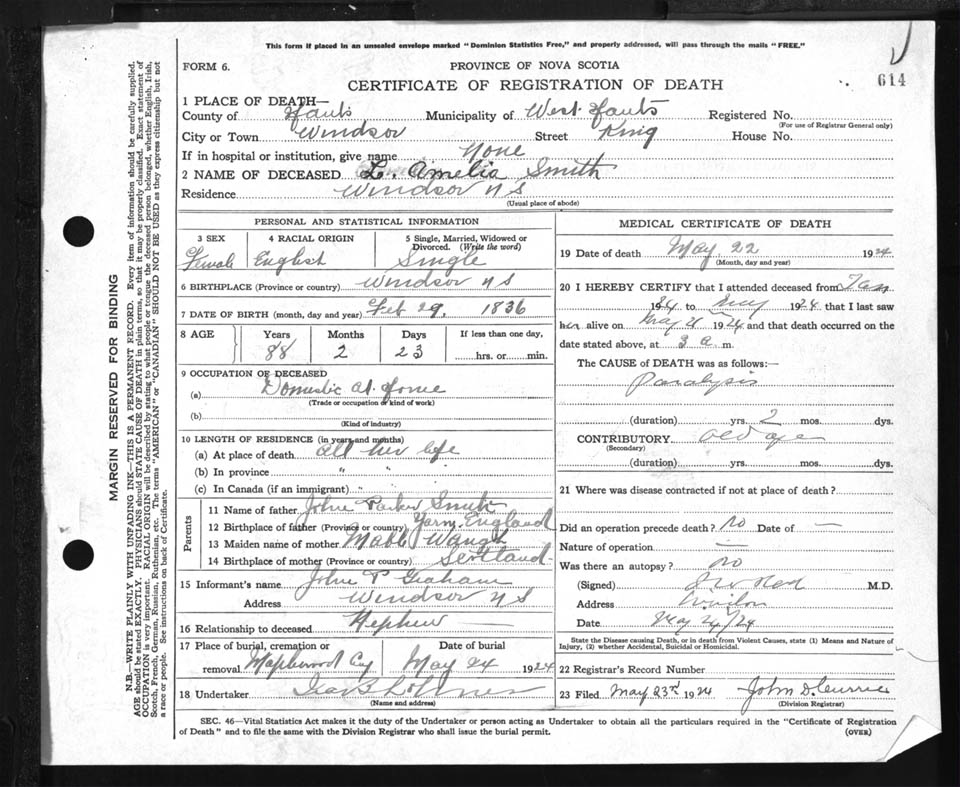 This form if placed in an unsealed envelope marked "Dominion Statistics Free," and properly addressed, will pass through the mails "FREE."
FORM 6.
PROVINCE OF NOVA SCOTIA
CERTIFICATE OF REGISTRATION OF DEATH
614
1 PLACE OF DEATH—
County of Hants Municipality of West Hants Registered No.
(For use of Registrar General only)
City or Town Windsor Street King House No.
If in hospital or institution, give name None
2 NAME OF DECEASED L. Amelia Smith
Residence Windsor N S
(Usual place of abode)
PERSONAL AND STATISTICAL INFORMATION
3 SEX 4 RACIAL ORIGIN 5 Single, Married, Widowed or Divorced. (Write the word)
Female English Single
6 BIRTHPLACE (Province or country) Windsor N S
7 DATE OF BIRTH (month, day and year) Feb 29, 1836
8 AGE Years Months Days If less than one day,
88 2 23 hrs. or min.
9 OCCUPATION OF DECEASED
(a) Domestic at Home
(Trade or occupation or kind of work)
(b)
(Kind of industry)
10 LENGTH OF RESIDENCE (in years and months)
(a) At place of death all her life
(b) In province " "
(c) In Canada (if an immigrant) "
Parents
11 Name of father John Parker Smith
12 Birthplace of father (Province or country) Yarm England
13 Maiden name of mother Mable Waugh
14 Birthplace of mother (Province or country) Scotland
15 Informant's name John P Graham
Address Windsor N S
16 Relationship to deceased Nephew —
17 Place of burial, cremation or removal Maplewood Cy
Date of burial May 24 1924
18 Undertaker
(Name and address)
MEDICAL CERTIFICATE OF DEATH
19 Date of death May, 22 1924
(Month, day and year)
20 I HEREBY CERTIFY that I attended deceased from Jan
1924 to May 1924 that I last saw
her alive on May 21 1924 and that death occurred on the
date stated above, at 3 a m.
The CAUSE OF DEATH was as follows:—
Paralysis
(duration) yrs. 2 mos. dys.
CONTRIBUTORY old age
(Secondary)
(duration) yrs. mos. dys.
21 Where was disease contracted if not at place of death?
Did an operation precede death? no Date of —
Nature of operation —
Was there an autopsy? no
(Signed) M.D.
Address Windsor
Date May 24/24
State the Disease causing Death, or in death from Violent Causes, state (1) Means and Nature of Injury, (2) whether Accidental, Suicidal or Homicidal.
22 Registrar's Record Number
23 Filed May 23rd 1924 John D. Currie
(Division Registrar)
SEC. 46—Vital Statistics Act makes it the duty of the Undertaker or person acting as Undertaker to obtain all the particulars required in the "Certificate of Registration
of Death" and to file the same with the Division Registrar who shall issue the burial permit.
(OVER)
MARGIN RESERVED FOR BINDING
N.B.—WRITE PLAINLY WITH UNFADING INK—THIS IS A PERMANENT RECORD. Every item of information should be carefully supplied.
AGE should be stated EXACTLY. PHYSICIANS should STATE CAUSE OF DEATH in plain terms, so that it may be properly classified. Exact statement of
OCCUPATION is very important. RACIAL ORIGIN will be described by stating to what people or tongue the deceased person belonged, whether English, Irish,
Scotch, French, German, Russian, Ruthenian, etc. The terms "AMERICAN" or "CANADIAN" SHOULD NOT BE USED as they express citizenship but not
a race or people. See instructions on back of Certificate.